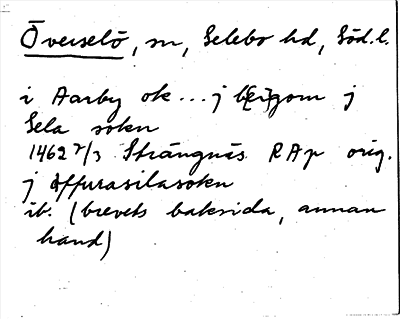 Överselö, sn, Selebo hd, Söd.l.
i Aarby ok ... j b(er)gom j
Sela sokn
1462 7/3 Strängnäs RAp orig.
j Offurasilasokn
ib. (brevets baksida, annan
hand)